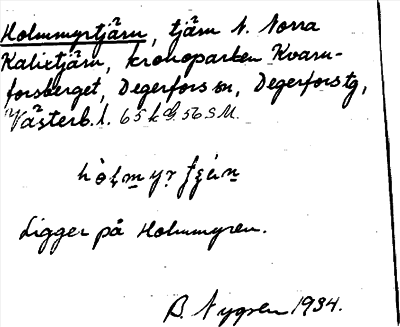 Holmmyrtjärn, tjärn N. Norra
Kalixtjärn, kronoparken Kvarn-
forsberget, Degerfors sn, Degerfors tg,
Västerb. l. 65 k 56 SM.
Ligger på Holmmyren.
B. Nygren 1934.